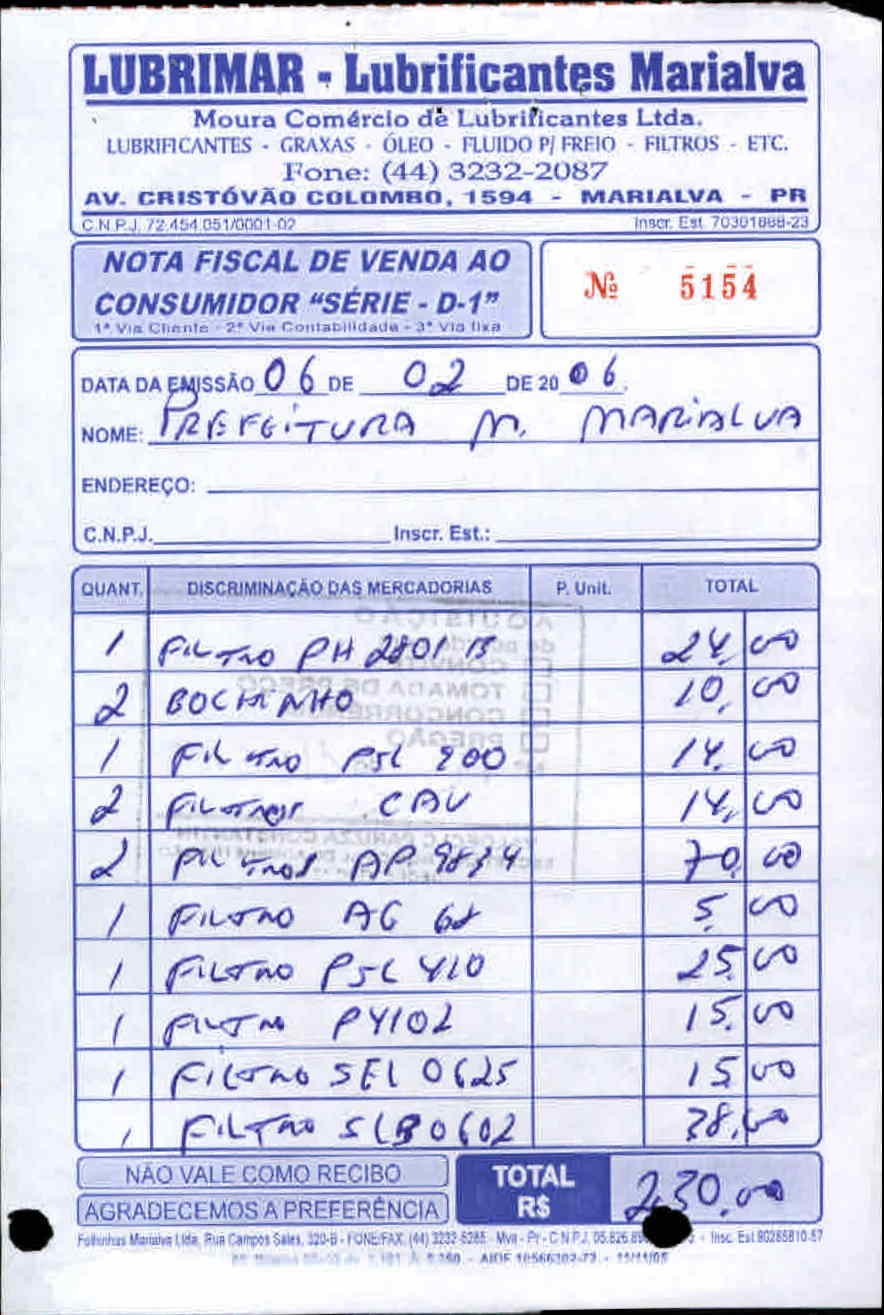 LUBRIMAR - Lubrificantes Marialva
Moura Comércio de Lubrificantes Ltda.
LUBRIFICANTES - GRAXAS - ÓLEO - FLUIDO P/ FREIO - FILTROS - ETC.
Fone: (44) 3232-2087
AV. CRISTÓVÃO COLOMBO, 1594 - MARIALVA - PR
C.N.P.J. 72.454.051/0001-02 Inscr. Est. 70301868-23
NOTA FISCAL DE VENDA AO
CONSUMIDOR “SÉRIE - D-1”
1ª Via Cliente - 2ª Via Contabilidade - 3ª Via fixa
Nº 5154
DATA DA EMISSÃO 06 DE 02 DE 20 06
NOME: PREFEITURA M. MARIALVA
ENDEREÇO:
C.N.P.J. Inscr. Est.:
QUANT. DISCRIMINAÇÃO DAS MERCADORIAS P. Unit. TOTAL
1 FILTRO PH 2801 B 24,00
2 BOCHINHO 10,00
1 FILTRO PSL 900 14,00
2 FILTROS CAV 14,00
2 FILTROS AP 9834 70,00
1 FILTRO AG 68 5,00
1 FILTRO PSL 410 25,00
1 FILTRO PY102 15,00
1 FILTRO SEL 0625 15,00
1 FILTRO SLB0602 38,00
NÃO VALE COMO RECIBO
AGRADECEMOS A PREFERÊNCIA
TOTAL
R$ 230,00
Folhinhas Marialva Ltda, Rua Campos Sales, 320-B - FONE/FAX: (44) 3232-5265 - Mva - Pr - C.N.P.J. 05.826 - Insc. Est 90285810-57
- AIDF 10566302-72 - 11/11/05